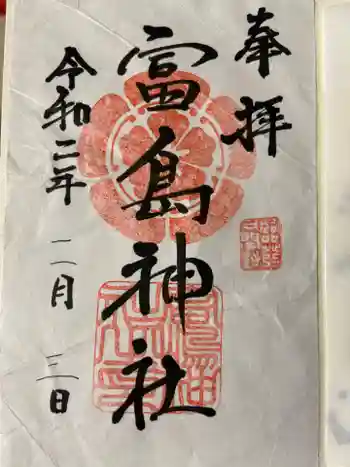 奉拝
富島神社
令和二年二月三日